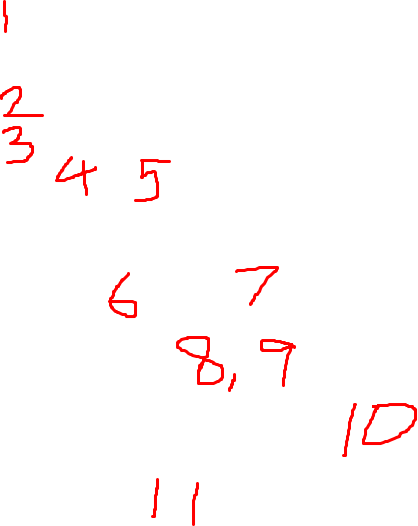 1
2
3
4 5
6 7
8,9
10
11